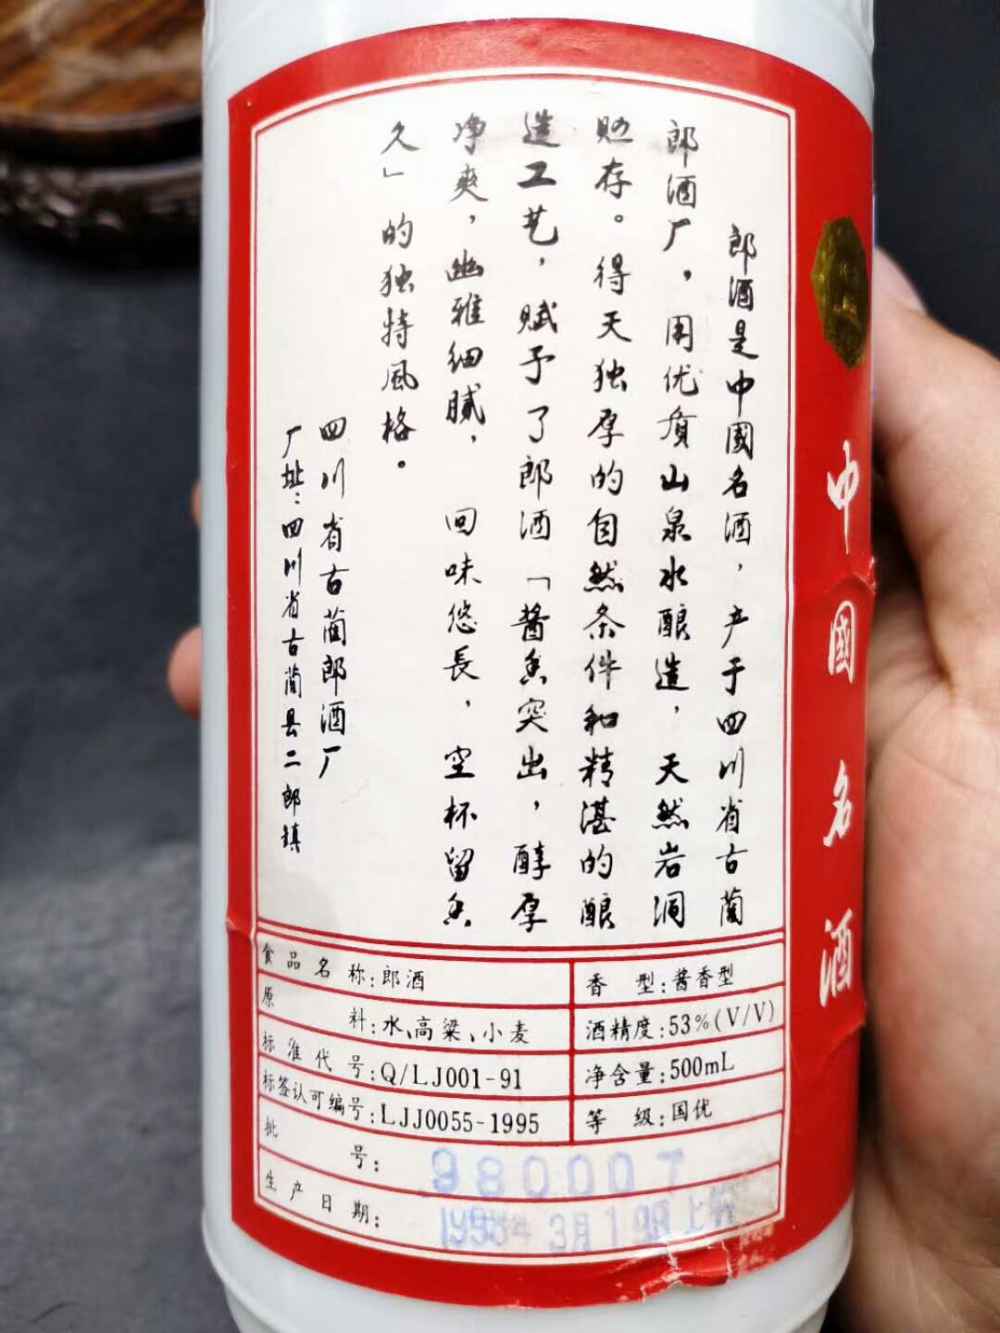 郎酒是中國名酒，产于四川省古蔺
郎酒厂，用优质山泉水酿造，天然岩洞
贮存。得天独厚的自然条件和精湛的酿
造工艺，赋予了郎酒「醬香突出，醇厚
净爽，幽雅细腻，回味悠長，空杯留香
久」的独特風格。
四川省古蔺郎酒厂
厂址：四川省古蔺县二郎镇
中國名酒
食品名称：郎酒
香型：酱香型
原料：水、高粱、小麦
酒精度：53%(V/V)
标准代号：Q/LJ001-91
净含量：500mL
标签认可编号：LJJ0055-1995
等级：国优
批号：980007
生产日期：3月